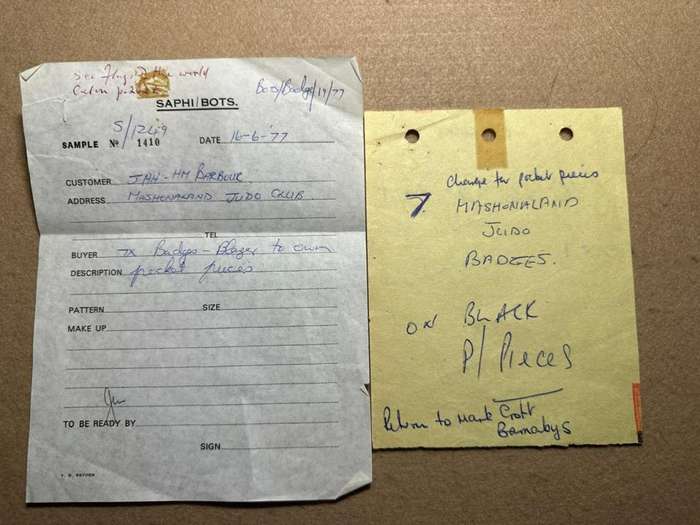 See Flags of the world
SAPHI/BOTS.
Bots/Badge/19/77
S/1249
SAMPLE Nº 1410 DATE 16-6-77
CUSTOMER JAH-HM BARBOUR
ADDRESS MASHONALAND JUDO CLUB.
TEL
BUYER 7x Badges - Blazer to own
DESCRIPTION pocket pieces
PATTERN SIZE
MAKE UP
TO BE READY BY
SIGN
change for pocket pieces
7. MASHONALAND
JUDO
BADGES.
ON BLACK
P/PIECES
Return to Mark Croft
Barnabys